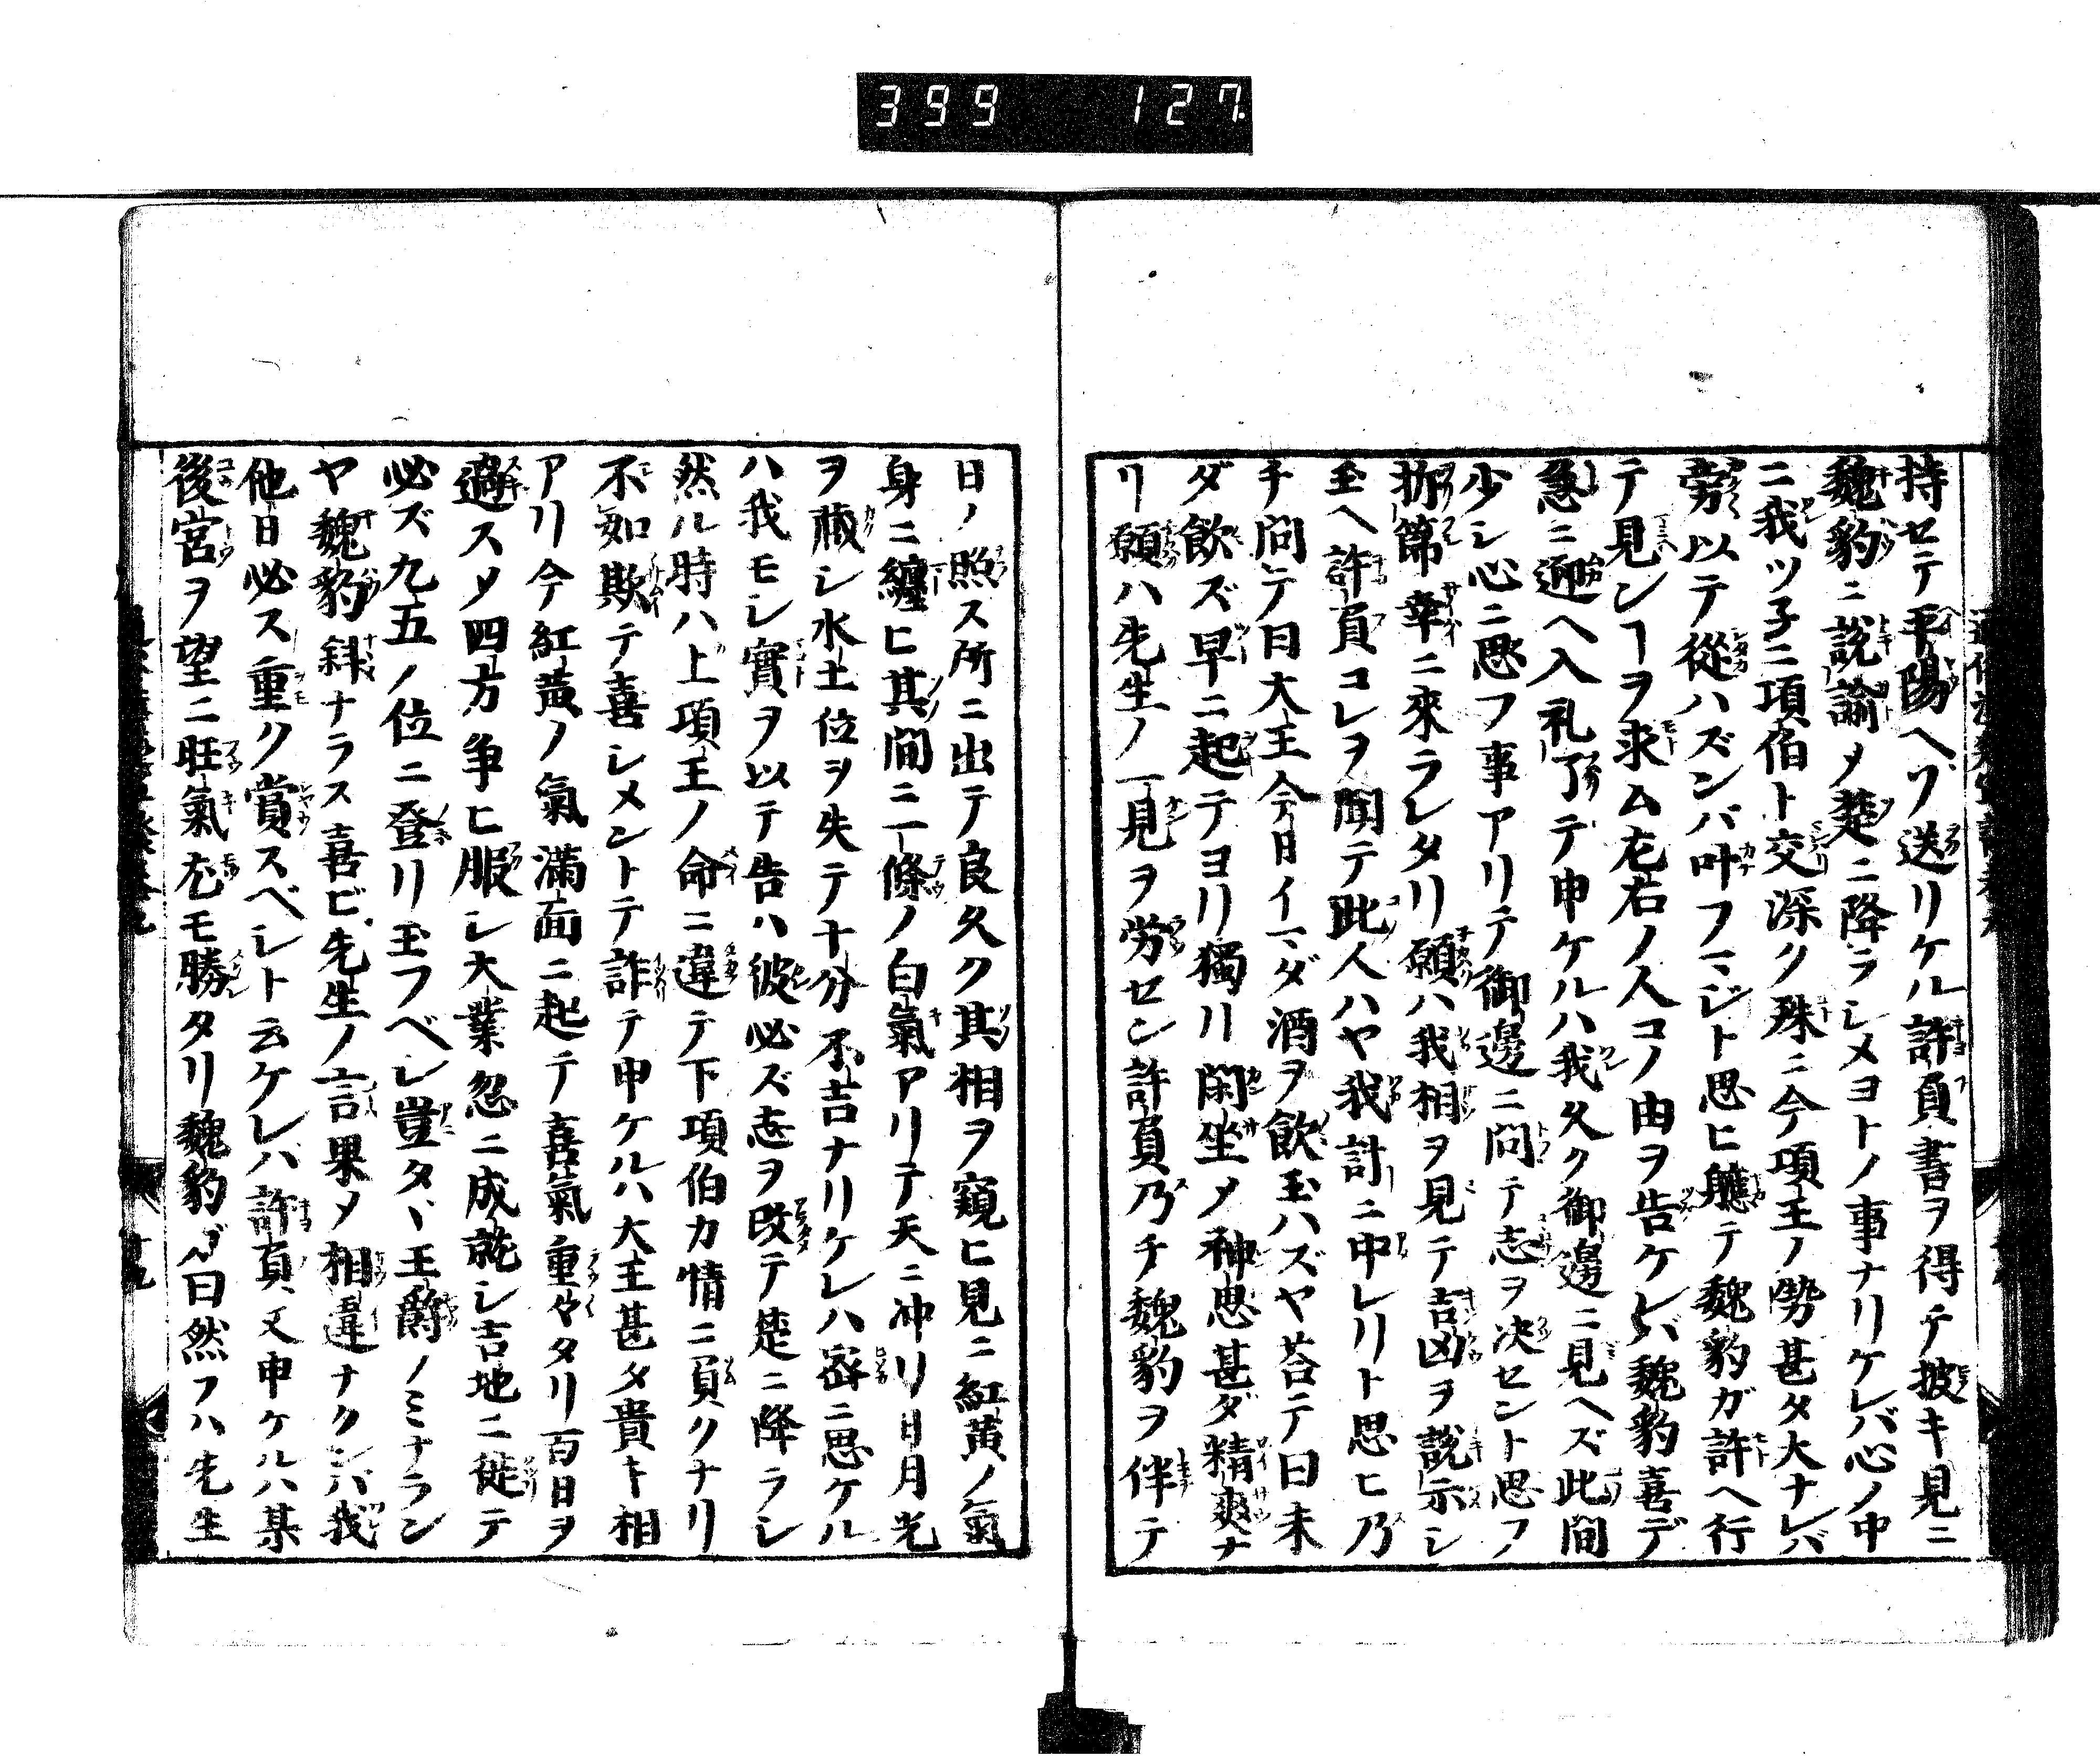 399 127
持セテ平陽ヘゾ送リケル許負書ヲ得テ披キ見ニ
魏豹ニ説諭メ楚ニ降ラシメヨトノ事ナリケレバ心ノ中
ニ我ツ子ニ項伯ト交深ク殊ニ今項王ノ勢甚タ大ナレバ
旁以テ從ハズンバ叶フマジト思ヒ軈テ魏豹ガ許ヘ行
テ見ンヿヲ求ム左右ノ人コノ由ヲ告ケレバ魏豹喜デ
急ニ迎ヘ入礼了テ申ケルハ我久ク御邊ニ見ヘズ此間
少シ心ニ思フ事アリテ御邊ニ問テ志ヲ决セント思フ
折節幸ニ來ラレタリ願ハ我相ヲ見テ吉凶ヲ説示シ
玉ヘ許負コレヲ聞テ此人ハヤ我計ニ中レリト思ヒ乃
チ問テ曰大王今日イマダ酒ヲ飲玉ハズヤ荅テ曰未
ダ飲ズ早ニ起テヨリ獨リ閑坐メ神思甚ダ精爽ナ
リ願ハ先生ノ一見ヲ労セン許負乃チ魏豹ヲ伴テ
日ノ照ス所ニ出テ良久ク其相ヲ窺ヒ見ニ紅黄ノ氣
身ニ纏ヒ其間ニ一條ノ白氣アリテ天ニ冲リ日月光
ヲ藏シ水土位ヲ失テ十分不吉ナリケレハ密ニ思ケル
ハ我モシ實ヲ以テ告ハ彼必ズ志ヲ改テ楚ニ降ラシ
然ル時ハ上項王ノ命ニ違テ下項伯カ情ニ負クナリ
不如欺テ喜シメントテ詐テ申ケルハ大王甚タ貴キ相
アリ今紅黄ノ氣滿面ニ起テ喜氣重々タリ百日ヲ
過スメ四方争ヒ服シ大業忽ニ成就シ吉地ニ徙テ
必ズ九五ノ位ニ登リ玉フベシ豈タヾ王爵ノミナラン
ヤ魏豹斜ナラス喜ビ先生ノ言果メ相違ナクンバ我
他日必ス重ク賞スベシト云ケレハ許負又申ケルハ某
後宮ヲ望ニ旺氣尤モ勝タリ魏豹ガ曰然フハ先生